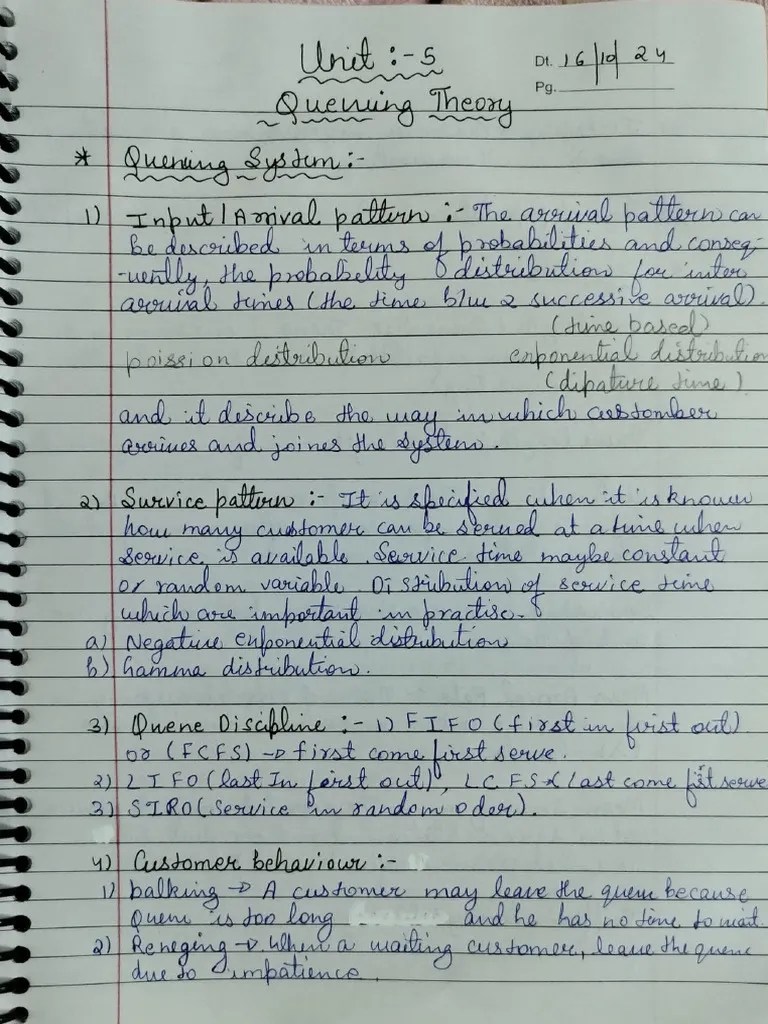 Unit :- 5
Dt. 16/10/24
Pg.
Queuing Theory
* Queuing System :-
1) Input / Arrival pattern :- The arrival pattern can
be described in terms of probabilities and conseq-
-uently, the probability distribution for inter
arrival times (the time b/w 2 successive arrival).
(time based)
poission distribution exponential distribution
(dipature time)
and it describe the way in which customber
arrives and joines the system.
2) Survice pattern :- It is specified when it is known
how many customer can be served at a time when
service is available. Service time maybe constant
or random variable Distribution of service time
which are important in practise.
a) Negative exponential distribution
b) Gamma distribution.
3) Queue Discipline :- 1) FIFO (first in first out)
or (FCFS) → first come first serve.
2) LIFO (last In first out), LCFS (Last come fist serve
3) SIRO (Service in random oder).
4) Customer behaviour :-
1) balking → A customer may leave the queue because
Queue is too long and he has no time to wait.
2) Reneging → When a waiting customer, leave the queue
due to impatience.